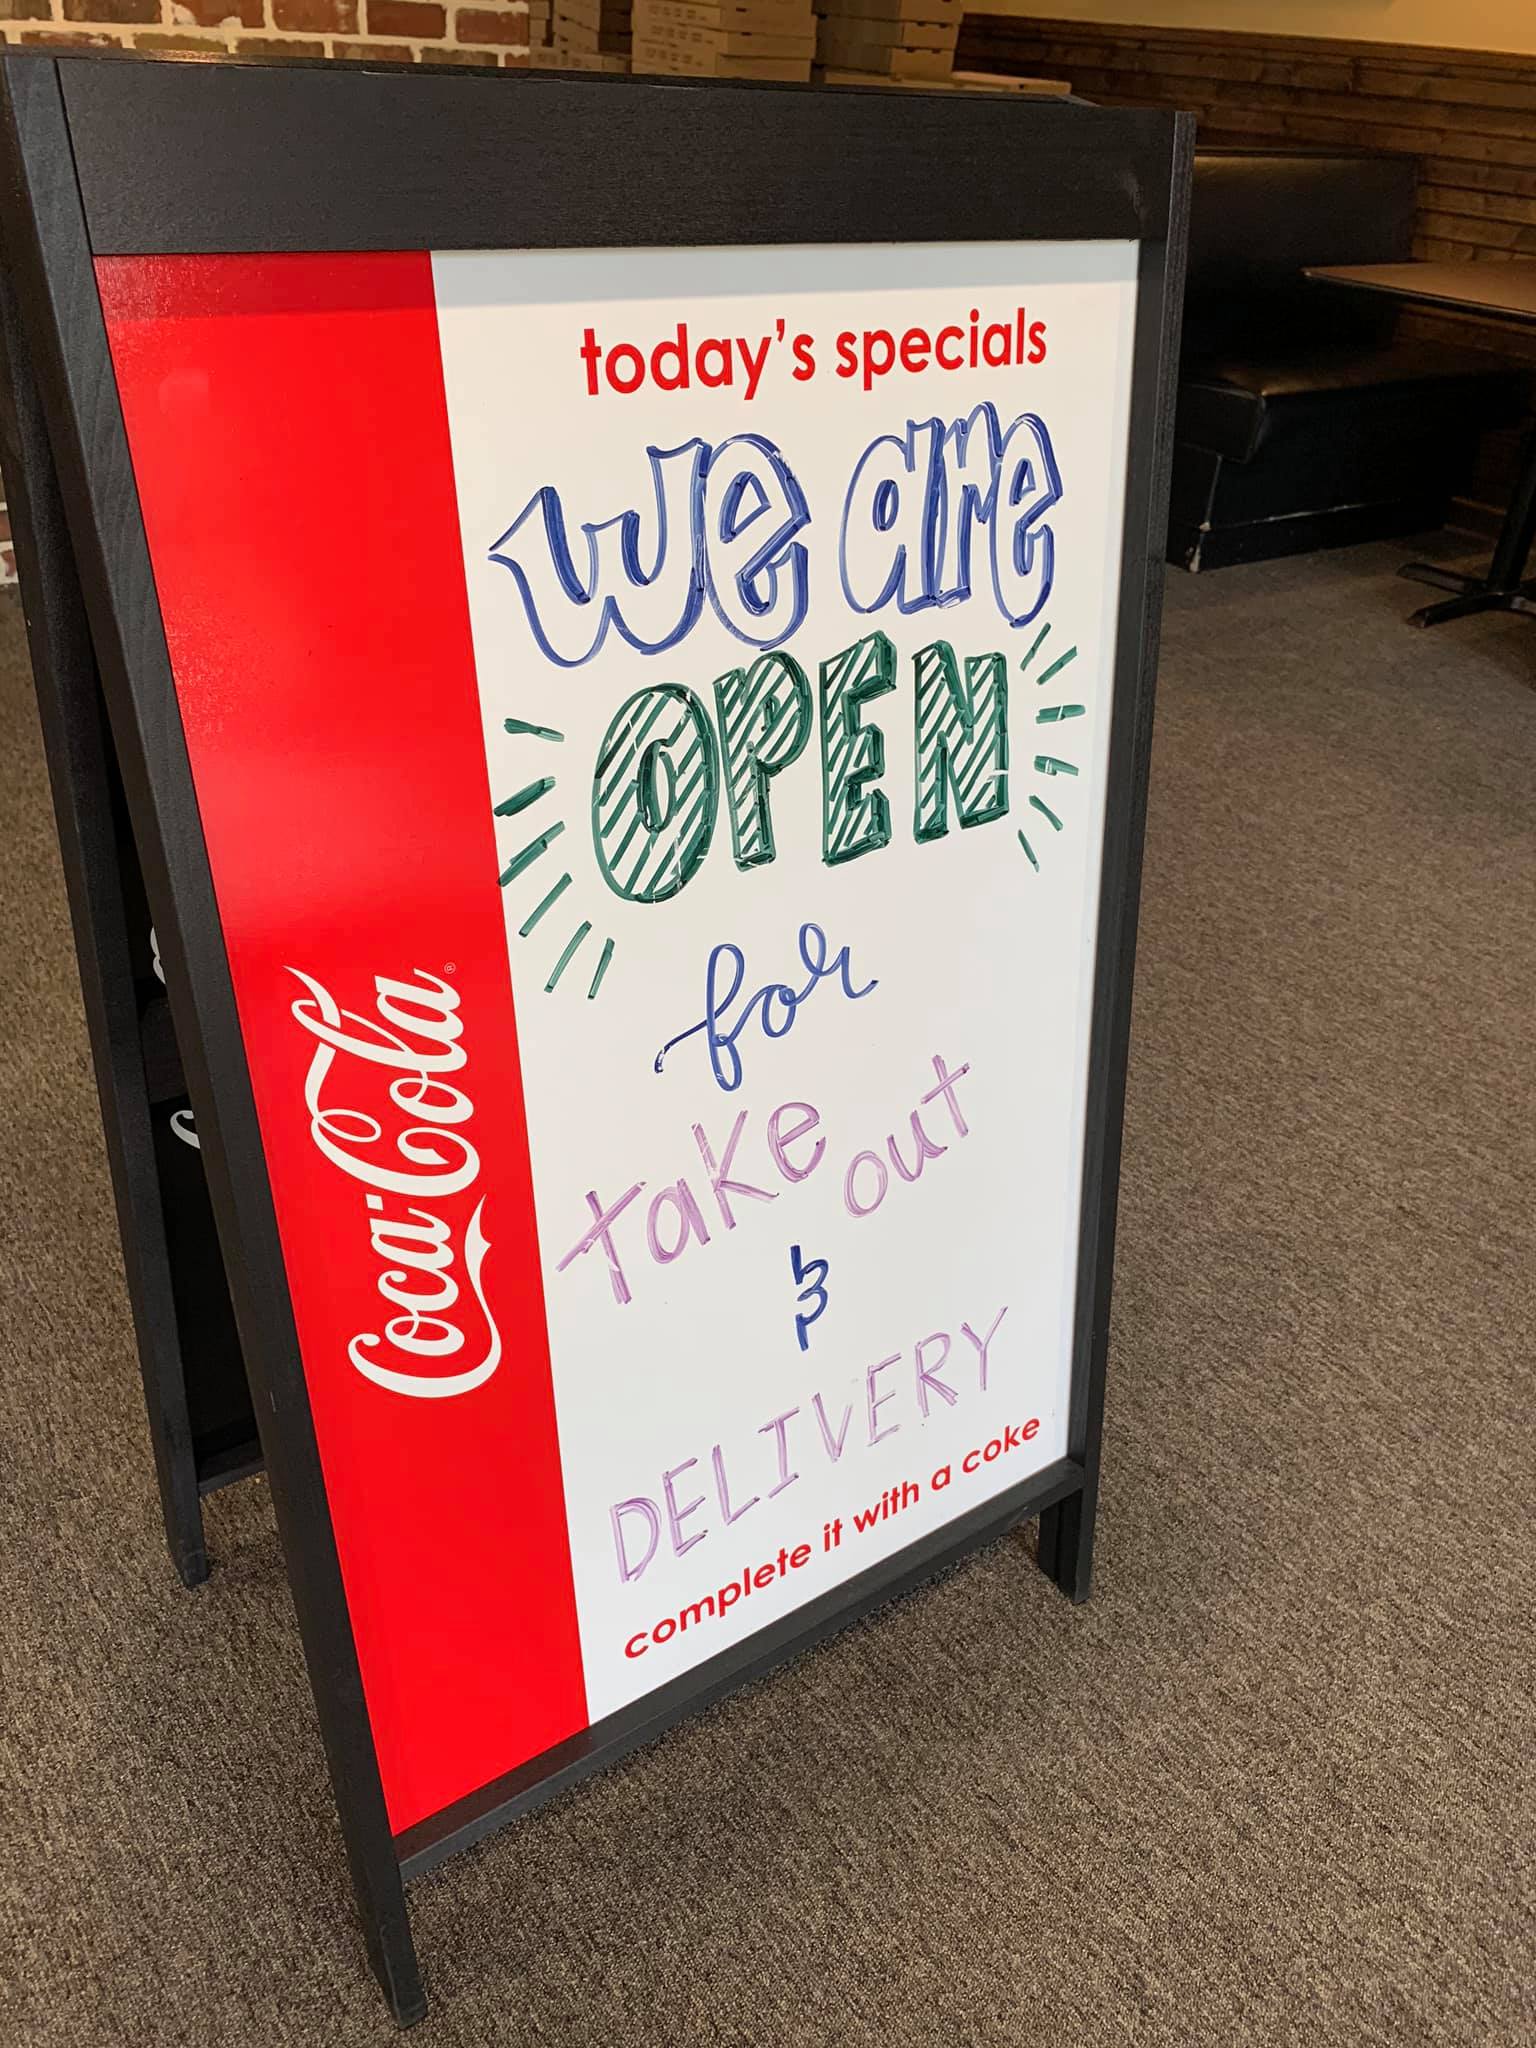 today's specials
we are
OPEN
for
take out
&
DELIVERY
complete it with a coke
Coca-Cola®